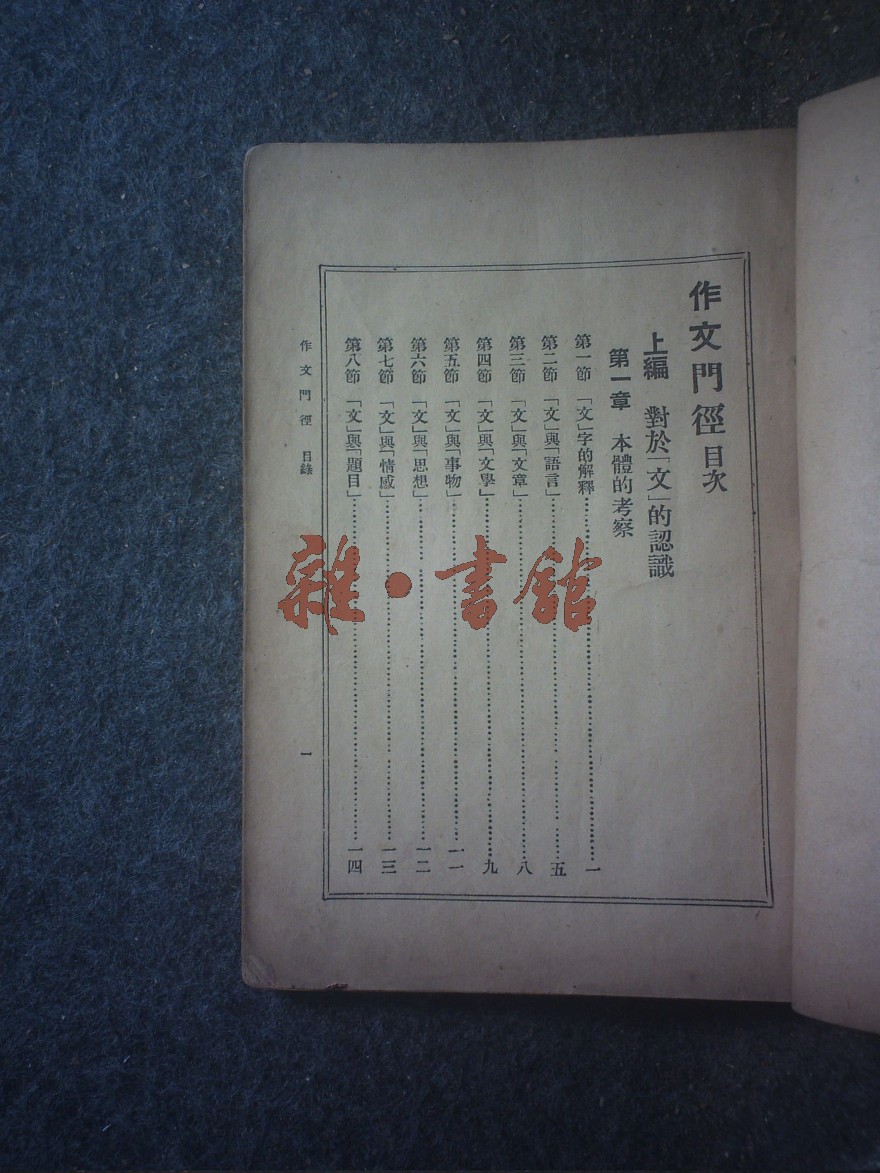 作文門徑 目次
上編 對於「文」的認識
第一章 本體的考察
第一節 「文」字的解釋……一
第二節 「文」與「語言」……五
第三節 「文」與「文章」……八
第四節 「文」與「文學」……九
第五節 「文」與「事物」……一一
第六節 「文」與「思想」……一二
第七節 「文」與「情感」……一三
第八節 「文」與「題目」……一四
作文門徑 目錄 一
雜·書館